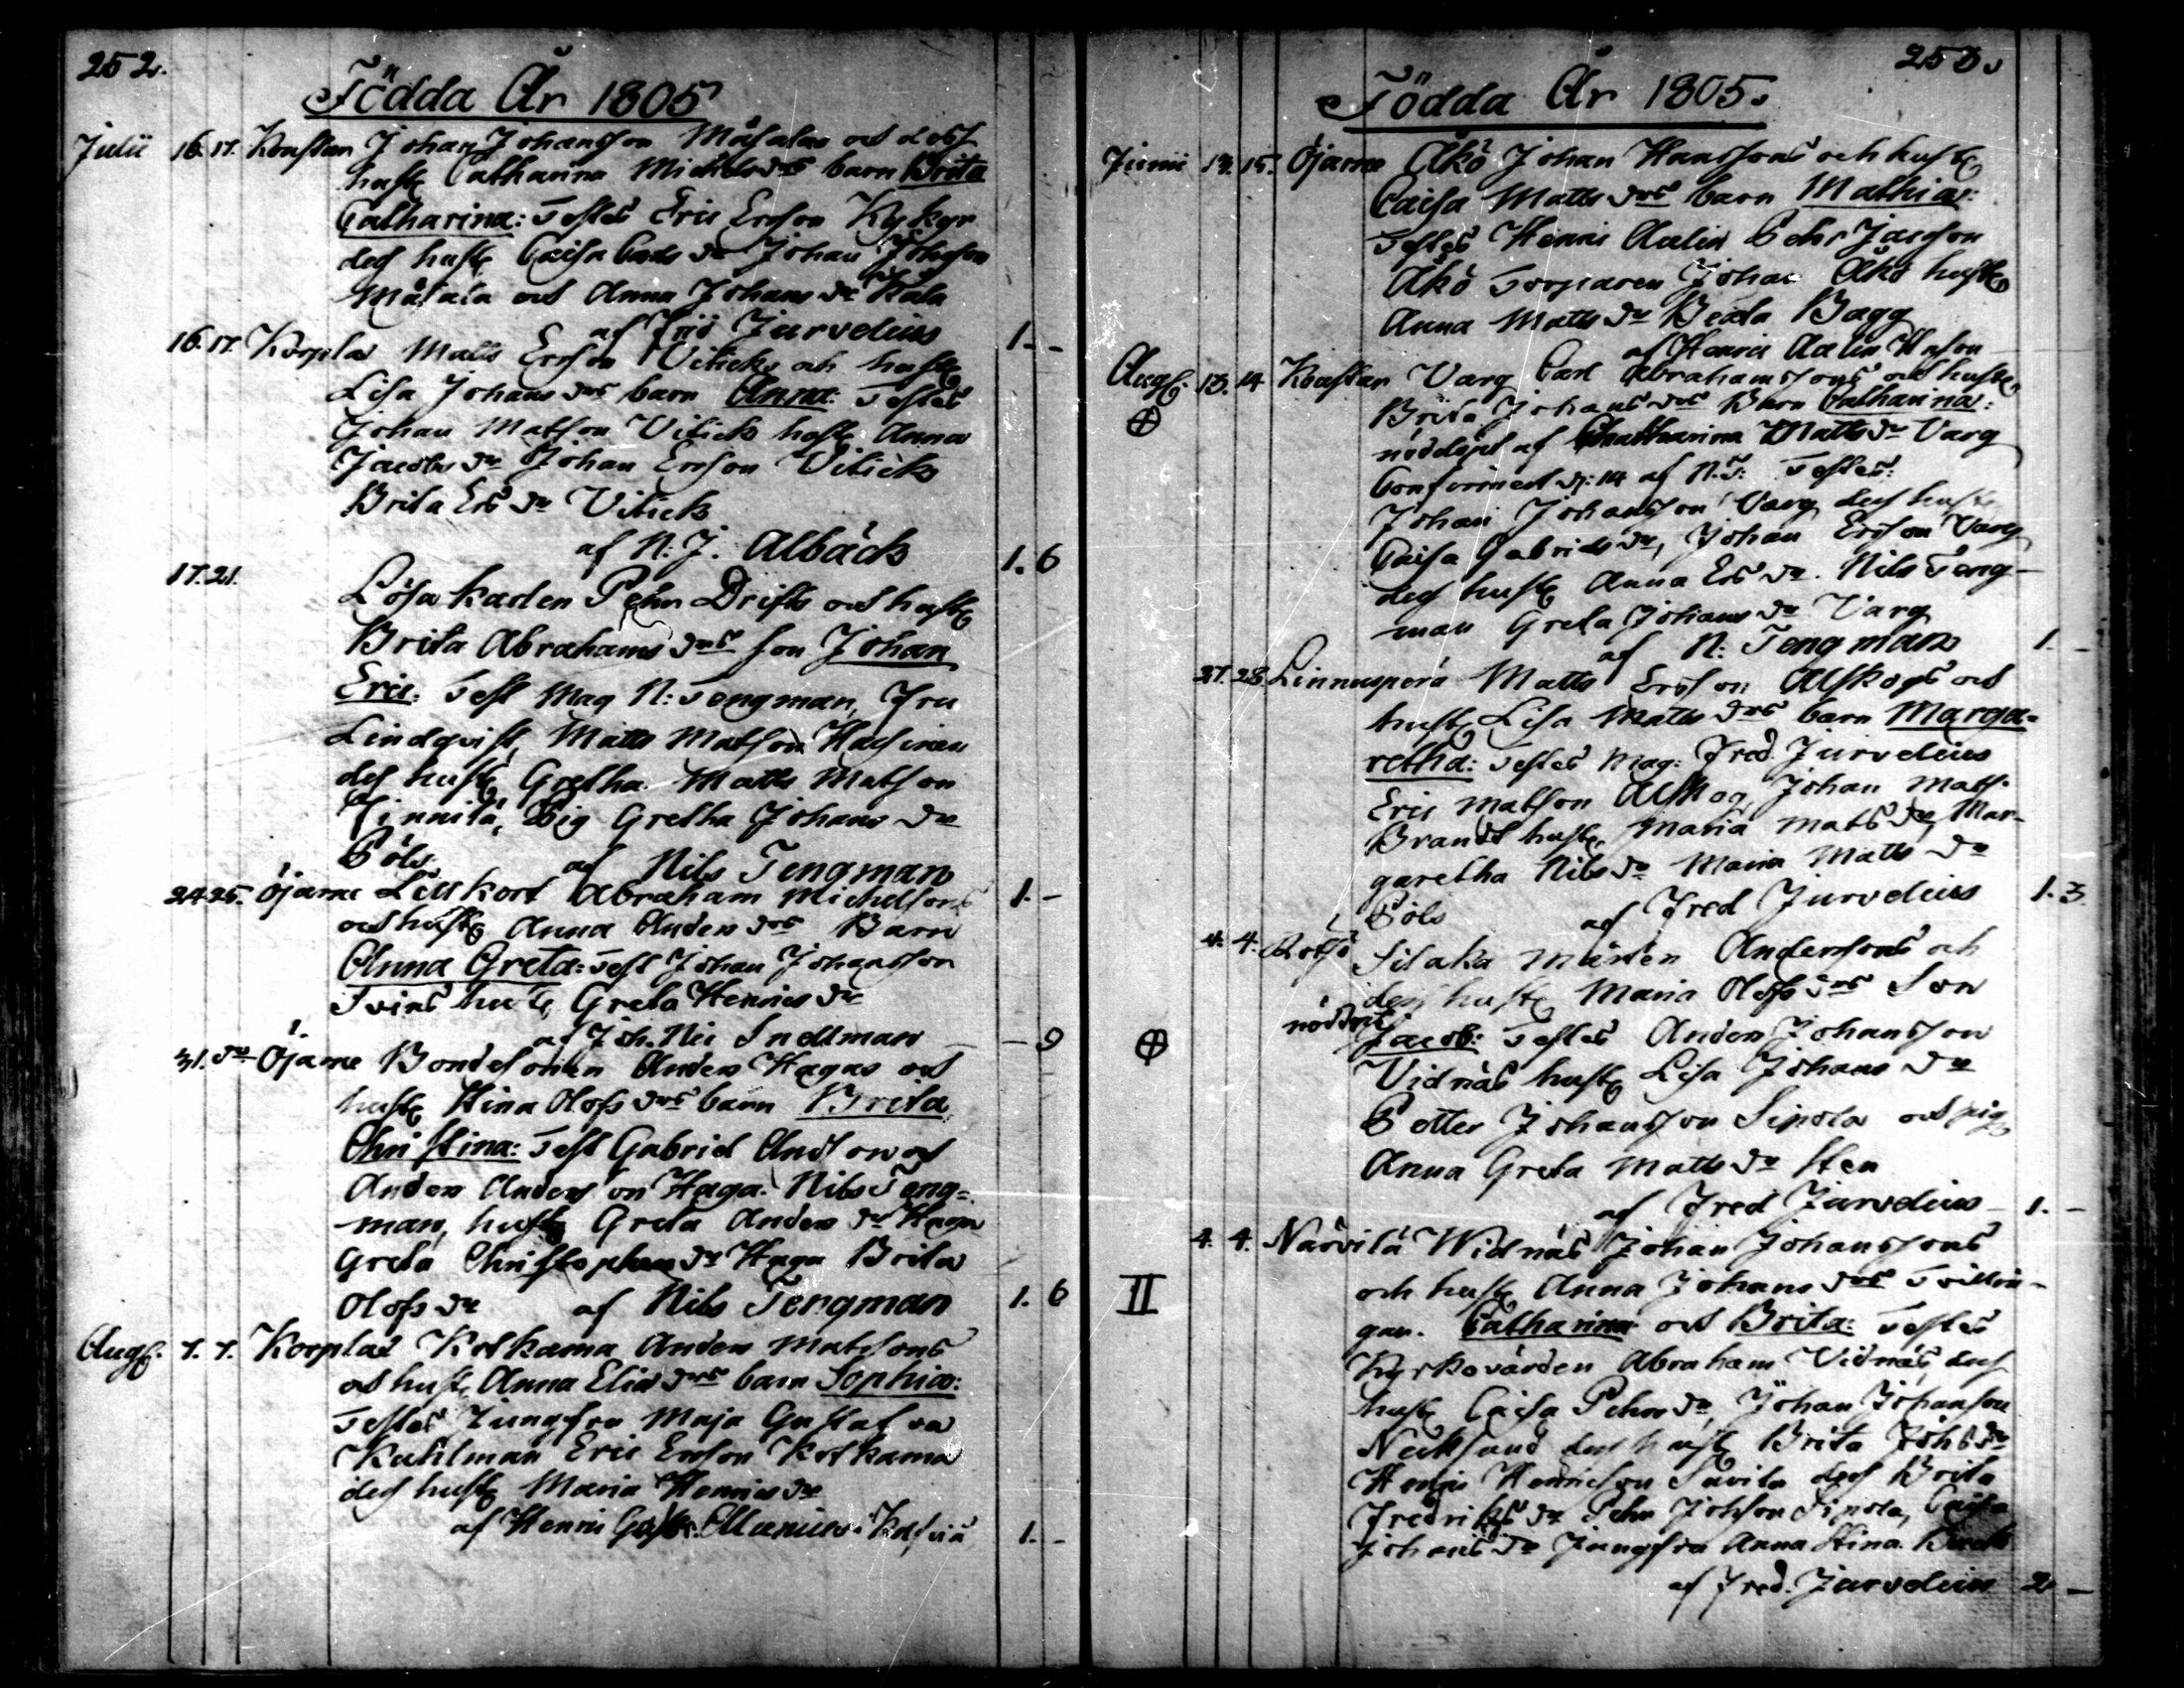 252.
Födda År 1805
Julii 16. 17. Konstan Johan Johansson Måsalas och dess
hust. Catharina Michelsdrs barn Brita
Catharina: Testes Eric Ersson Kykyr
dess hust. Caisa Carls dr Johan Johanson
Måsala och Anna Johans dr Kåla
af Fred Jurvelius 1. -
16. 17. Korpilax Matts Ersson Vitick och hust.
Lisa Johans drs barn Anna: Testes
Johan Matsson Vitick hust. Anna
Jacobs dr Johan Ersson Vitick
Brita Ers dr Vitick
af N. J. Albäck 1. 6
17. 21.
Lösa karlen Pehr Drifts och hust.
Brita Abrahams drs son Johan
Eric: Test Mag N: Tengman, Fru
Lindqvist, Matts Matsson
dess hust. Gretha. Matts Matson
Pig Gretha Johans dr
Söls. af Nils Tengman 1. -
24. 25. Öjarne Abraham Michelsons
och hust. Anna Anders drs Barn
Anna Greta: Test Johan Johansson
Svins hust. Greta Henrics dr
af Joh. Nic Snellman - 9
31. dr Öjarne Bondesonen Anders Hagas och
hust. Stina Olofs drs barn Brita
Christina: Test Gabriel Andson och
Anders Anderson Haga. Nils Teng=
man, hust. Greta Anders dr Haga
Greta Christophers dr Haga Brita
Olofs dr af Nils Tengman 1. 6
Aug. 7. 7. Korplax Kotkama Anders Matssons
och hust. Anna Elias drs barn Sophia:
Testes Jungfru Maja Gustafva
Kahlman Eric Ersson Kotkama
dess hust. Maria Henrics dr
af Henric 1. -
253.
Födda År 1805.
Junii 13. 15. Öjarne Åkö Johan Hanssons och hust.
Caisa Matts drs barn Mathias:
Testes Henric Aalin Pehr Jacsson
Åkö Torparen Johan Åkö hust.
Anna Matts dr Beata Bagg
af Henric Aalin
Aug. 13. 14 Konstan Varg Carl Abrahamssons och hustr.
Brita Johans drs Barn Catharina:
nöddöpt af Chatharina Matts dr Varg
Confirmerat d: 14 af N. T: Testes:
Johan Johansson Varg dess hust.
Caisa Gabriels dr, Johan Ersson Varg
dess hust. Anna Ers dr. Nils Teng-
man Greta Johans dr Varg
af N: Tengman 1. -
27. 28. Linnusperä Matts Ersson Alskogs och
hust. Lisa Matts drs barn Marga=
retha: Testes Mag: Fred. Jurvelius
Eric Matson Alskog Johan Mats.
Brandt hust. Maria Mats dr, Mar-
garetha Nils dr Maria Matts dr
Söls af Fred Jurvelius 1. 3.
4. 4. Rotsö Silaka Mårten Anderssons och
dess hust. Maria Olofs drs Son
nöddöpt Jacob: Testes Anders Johansson
Vidnäs hust. Lisa Johans dr
Petter Johansson Sipola och pig.
Anna Greta Matts dr Sten
af Fred Jurvelius - 1. -
4. 4. Närvilä Widnäs Johan Johanssons
II och hust. Anna Johans drs Tvillin-
gar. Catharina och Brita: Testes
Kyrkovärden Abraham Vidnäs dess
hust. Caisa Pehrs dr, Johan Johanson
Neksund dess hust. Brita Johs dr
Henric Henricson Savila dess Brita
Fredriks dr Pehr Johson Sipola, Caisa
Johans dr Jungfru Anna Stina Back
af Fred. Jurvelius 2 -